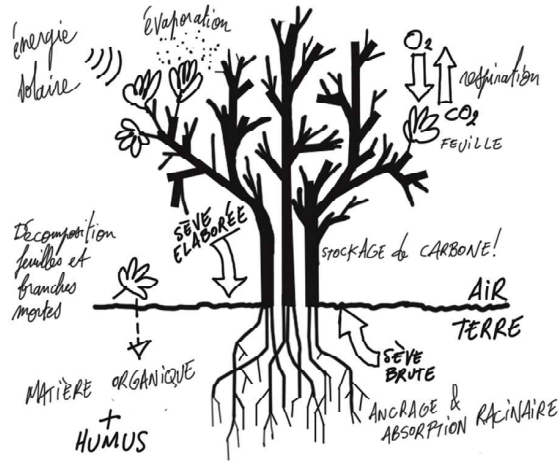 énergie
solaire
évaporation
O₂
respiration
CO₂
FEUILLE
SÈVE
ÉLABORÉE
STOCKAGE de CARBONE!
Décomposition
feuilles et
branches
mortes
AIR
TERRE
SÈVE
BRUTE
MATIÈRE ORGANIQUE
+
HUMUS
ANCRAGE &
ABSORPTION RACINAIRE